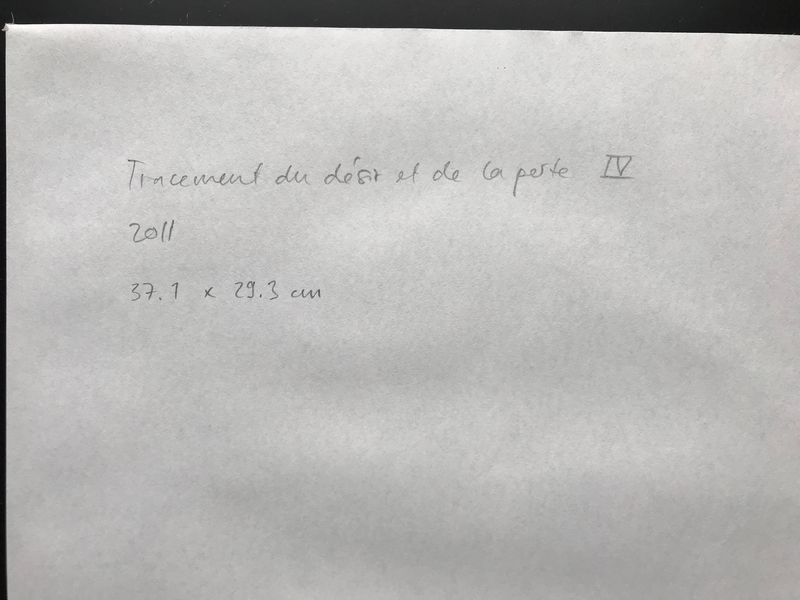 Tracement du désir et de la perte IV
2011
37.1 x 29.3 cm